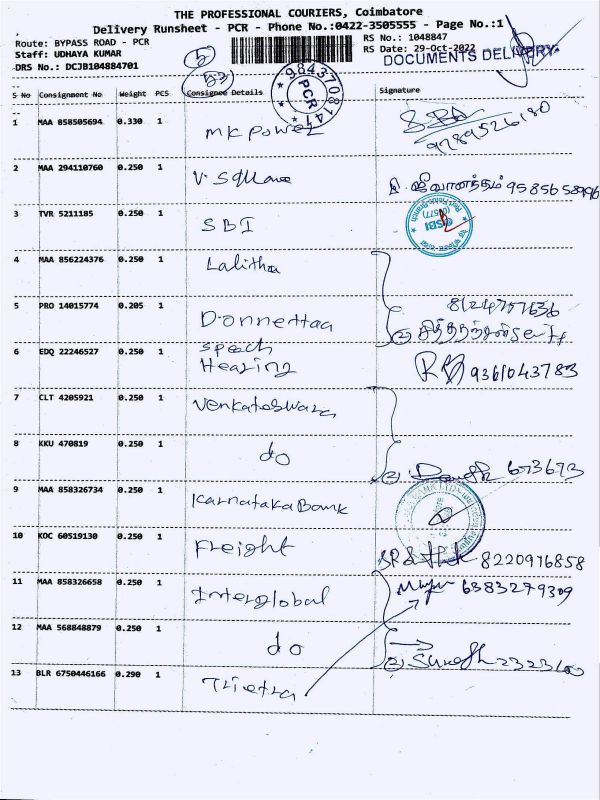 THE PROFESSIONAL COURIERS, Coimbatore
Delivery Runsheet - PCR - Phone No.:0422-3505555 - Page No.:1
Route: BYPASS ROAD - PCR
RS No.: 1048847
Staff: UDHAYA KUMAR
RS Date: 29-Oct-2022
DRS No.: DCJB104884701
DOCUMENTS DELIVERY
5
53
9843708147
PCR
S No Consignment No Weight PCS Consignee Details Signature
1 MAA 858505694 0.330 1 MK Power 9789526180
2 MAA 294110760 0.250 1 V. Square
3 TVR 5211185 0.250 1 SBI
SBI
4 MAA 856224376 0.250 1 Lalitha
5 PRO 14015774 0.205 1 Donnettaa 8124757636
6 EDQ 22246527 0.250 1 Speech
Hearing 9361043783
7 CLT 4205921 0.250 1 Venkateswara
8 KKU 470819 0.250 1 do 673673
9 MAA 858326734 0.250 1 Karnataka Bank
10 KOC 60519130 0.250 1 Freight 8220916858
11 MAA 858326658 0.250 1 Interglobal 6383279309
12 MAA 568848879 0.250 1 do Suresh 2323100
13 BLR 6750446166 0.290 1